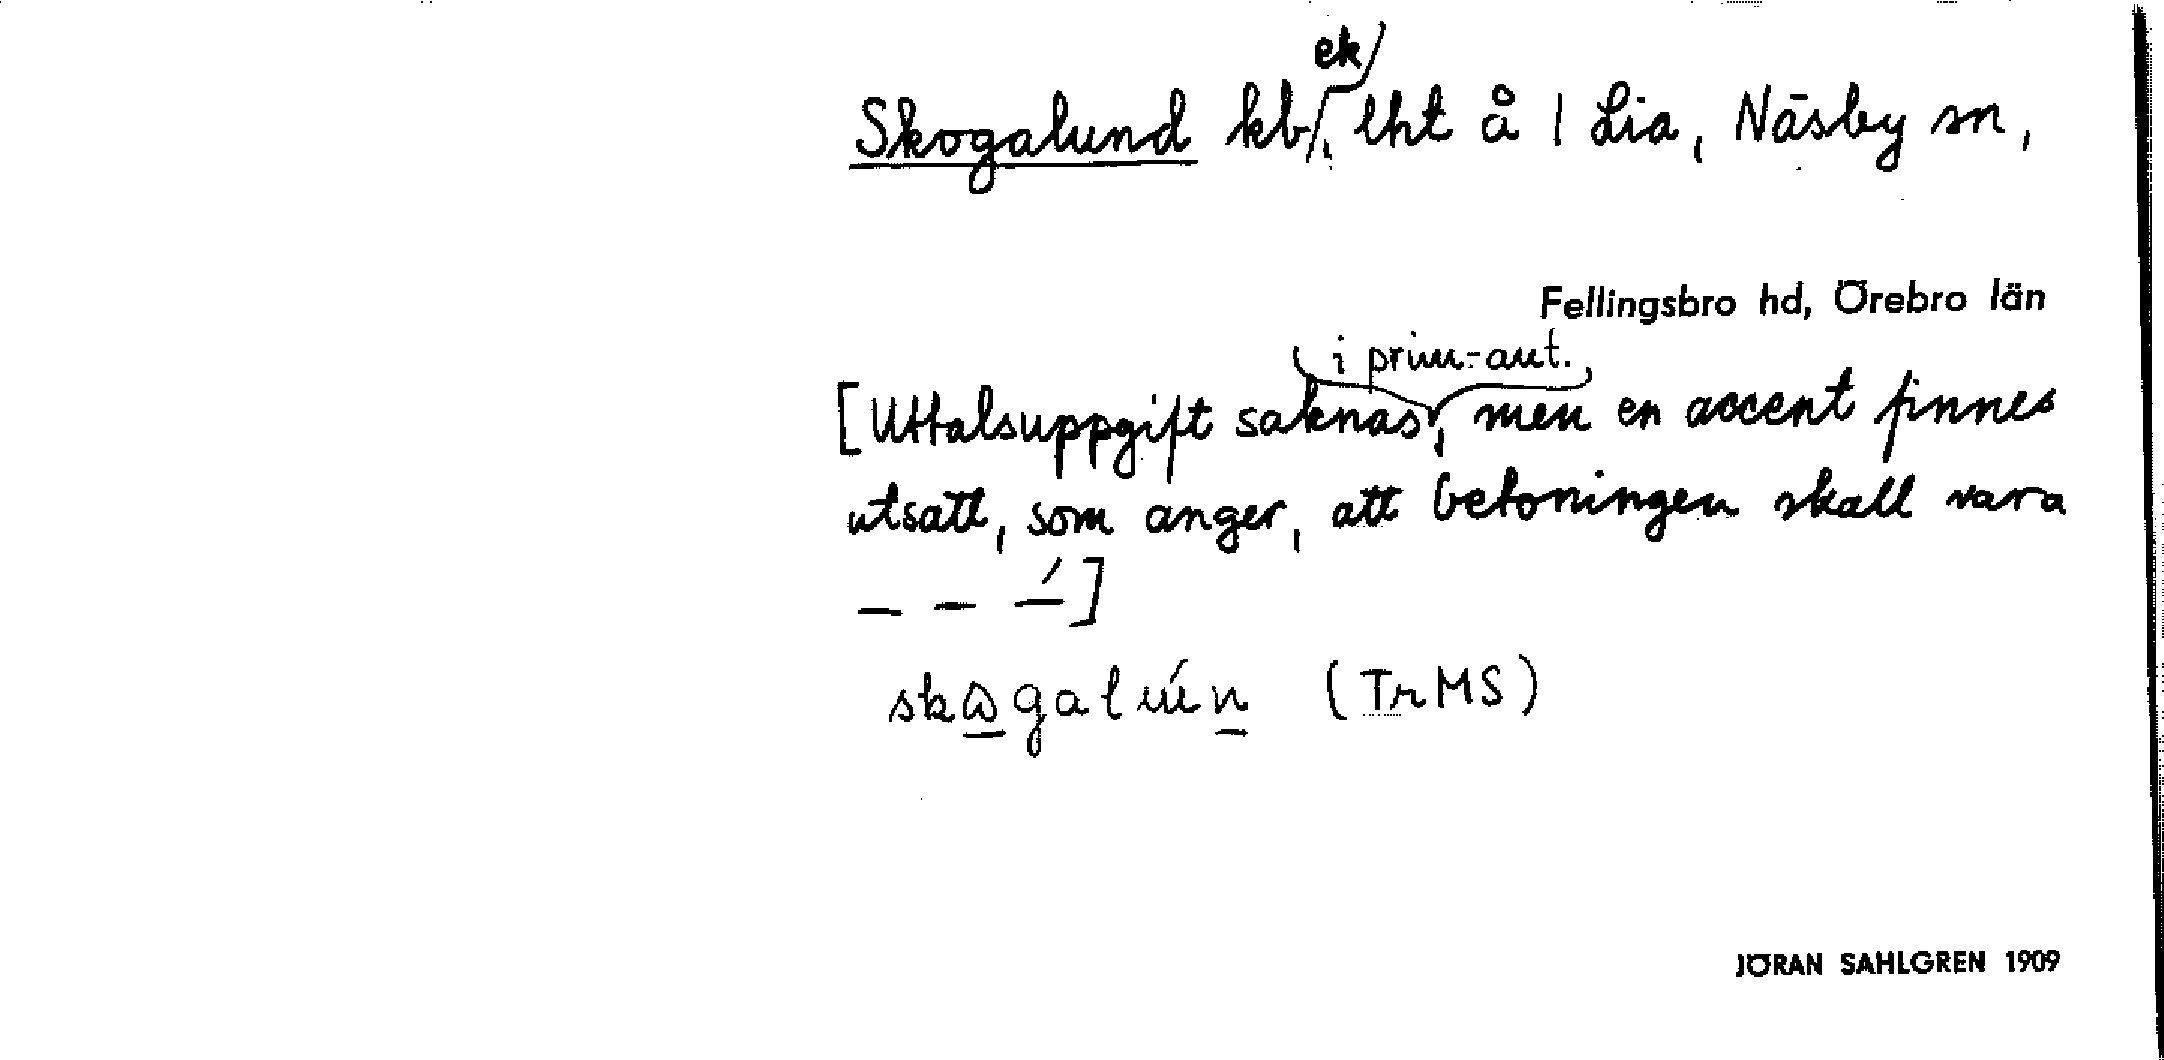 ek
Skogalund kb, lht å 1 Lia, Näsby sn,
Fellingsbro hd, Örebro län
i prim.-aut.
[Uttalsuppgift saknas, men en accent finnes
utsatt, som anger, att betoningen skall vara
– – –́]
(TrMS)
JÖRAN SAHLGREN 1909